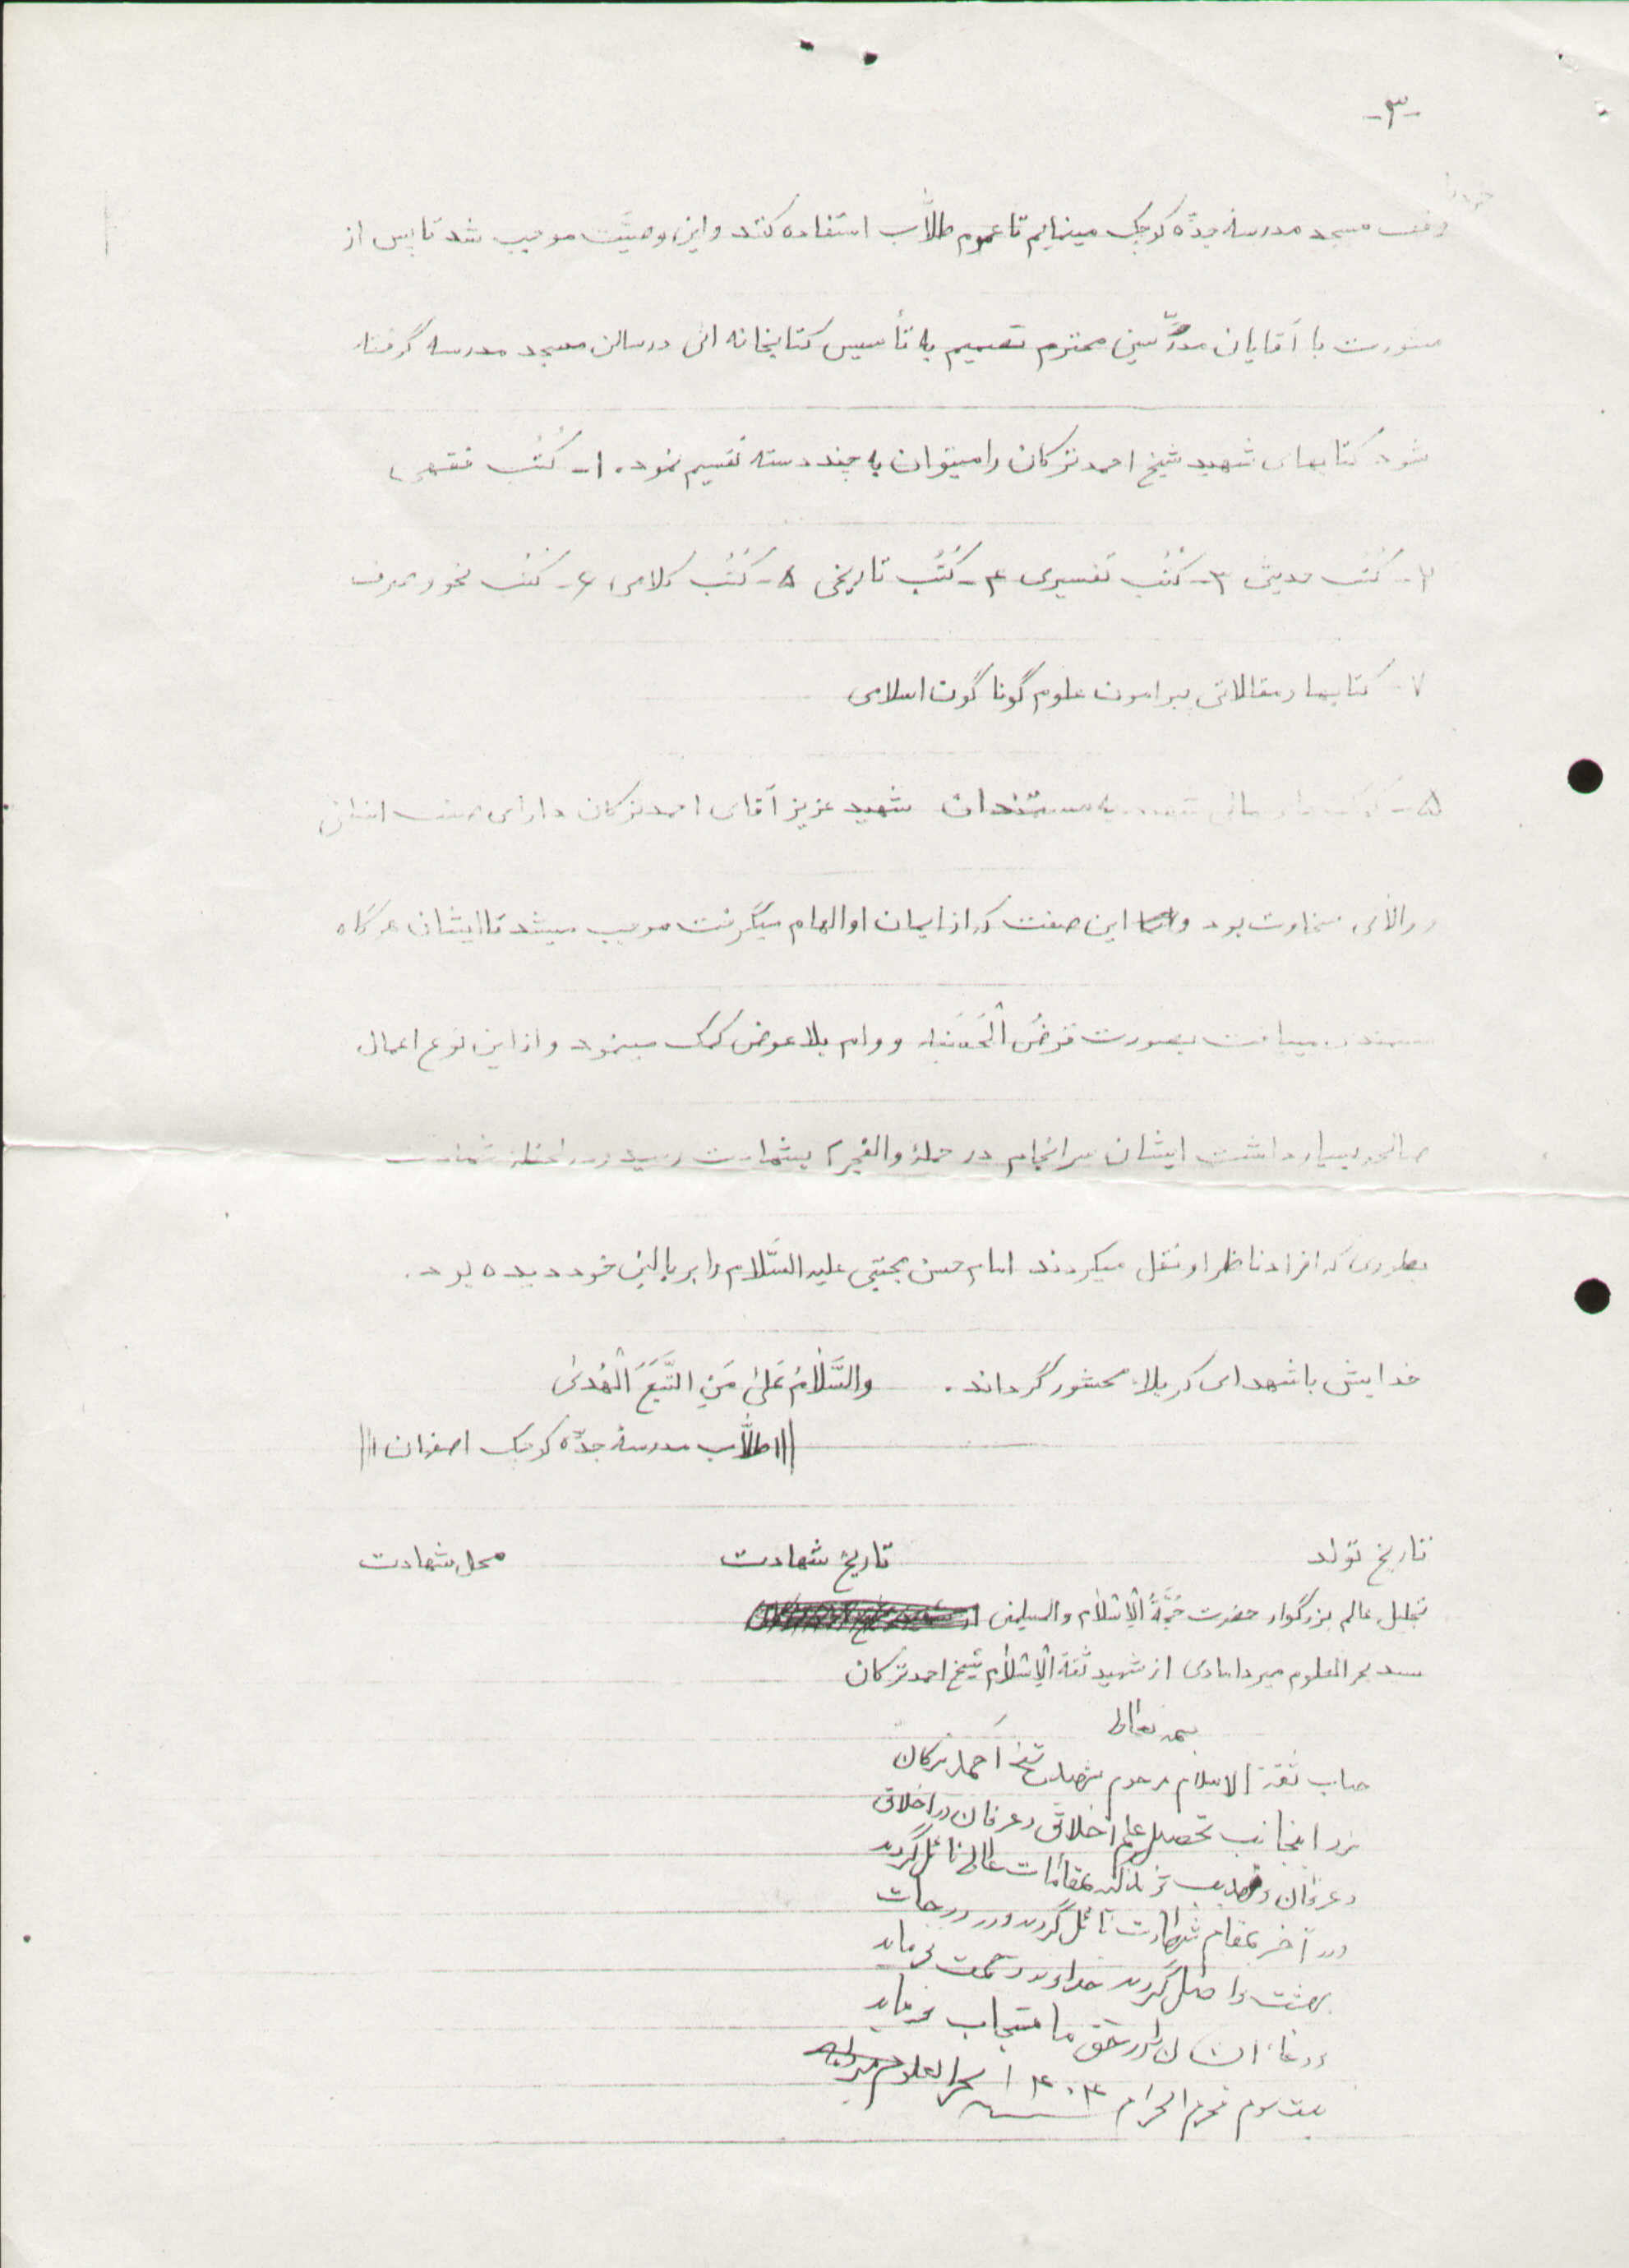 -۳-
خود را
وقف مسجد مدرسهٔ جدّه کوچک مینمایم تا عموم طلّاب استفاده کنند و این وصیّت موجب شد تا پس از
مشورت با آقایان مدرّسین محترم تصمیم به تأسیس کتابخانه ائی در سالن مسجد مدرسه گرفته
شود کتابهای شهید شیخ احمد ترکان را میتوان به چند دسته تقسیم نمود. ۱- کُتُب فقهی
۲- کُتُب حدیثی ۳- کُتُب تفسیری ۴- کُتُب تاریخی ۵- کُتُب کلامی ۶- کُتُب نحو و صرف
۷- کتابها و مقالاتی پیرامون علوم گوناگون اسلامی
۵- کمک های مالی شهید به مستمندان شهید عزیز آقای احمد ترکان دارای صفت انسانی
و والای سخاوت بود و این صفت که از ایمان او الهام میگرفت موجب میشد تا ایشان هر گاه
مستمندی مییافت بصورت قرضُ الْحَسَنه و وام بلاعوض کمک مینمود و از این نوع اعمال
صالحه بسیار داشت ایشان سرانجام در حملهٔ والفجر ۲ بشهادت رسید و در لحظهٔ شهادت
بطوری که افراد ناظر او نقل میکردند امام حسن مجتبی علیه السَّلام را بر بالین خود دیده بود.
خدایش با شهدای کربلا محشور گرداند. والسَّلامُ عَلیٰ مَنِ اتَّبَعَ الْهُدیٰ
طلّاب مدرسهٔ جدّه کوچک اصفهان
تاریخ تولد تاریخ شهادت محل شهادت
تجلیل عالم بزرگوار حضرت حُجَّةُ الْإِسْلام والمسلمین
سید بحرالعلوم میردامادی از شهید ثقة الْإِسْلام شیخ احمد ترکان
بسمه تعالی
جناب ثقة الاسلام مرحوم شهید شیخ احمد ترکان
نزد اینجانب تحصیل علم اخلاق و عرفان و در اخلاق
و عرفان و تهذیب و تزکیه بمقامات عالی نائل گردید
و در آخر بمقام شهادت نائل گردید و در درجات
بهشت واصل گردید خداوند رحمت فرماید
و دعاء ایشان را در حق ما مستجاب فرماید
بیست سوم محرم الحرام ۱۴۰۴ بحرالعلوم میردامادی